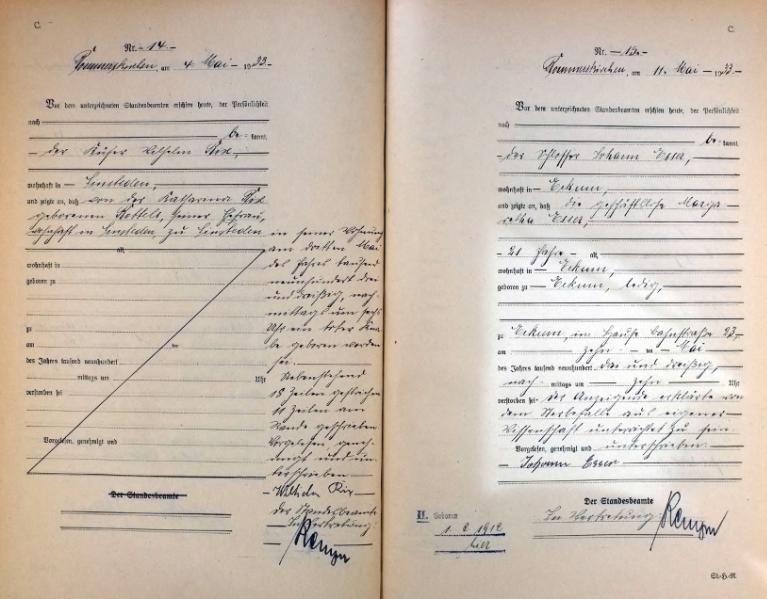 C.
Nr. - 14. -
Rommerskirchen, am 4. Mai 1933.
Vor dem unterzeichneten Standesbeamten erschien heute, der Persönlichkeit
nach
be= kannt,
- der Küfer Wilhelm
wohnhaft in Sinsteden,
und zeigte an, daß von der Katharina
geborenen seiner Ehefrau,
wohnhaft in Sinsteden, zu Sinsteden
alt,
wohnhaft in
geboren zu
zu
am ten
des Jahres tausend neunhundert
mittags um Uhr
verstorben sei
Vorgelesen, genehmigt und
Der Standesbeamte
in seiner Wohnung
am dritten Mai
des Jahres tausend
neunhundert drei
und dreißig, nach-
mittags um sechs
Uhr ein toter Kna-
be geboren worden
sei.
Nebenstehend
18 Zeilen gestrichen
11 Zeilen am
Rande geschrieben
Vorgelesen, geneh-
migt und un-
terschrieben
Wilhelm
Der Standesbeamte
In Vertretung:
C.
Nr. - 15. -
Rommerskirchen, am 11. Mai 1933
Vor dem unterzeichneten Standesbeamten erschien heute, der Persönlichkeit
nach
be= kannt,
- der Schlosser Johann Esser,
wohnhaft in Eckum,
und zeigte an, daß die geschäftslose Marga-
retha Esser,
- 21 Jahre - alt,
wohnhaft in Eckum,
geboren zu Eckum, ledig,
zu Eckum, im Hause Bahnstraße 23
am zehn ten Mai
des Jahres tausend neunhundert drei und dreißig,
nach mittags um zehn Uhr
verstorben sei. Der Anzeigende erklärte von
dem Sterbefalle aus eigener
Wissenschaft unterrichtet zu sein.
Vorgelesen, genehmigt und unterschrieben
Johann Esser
Der Standesbeamte
In Vertretung:
II. Geboren
1. 2. 1912
hier
St.-H.-R.